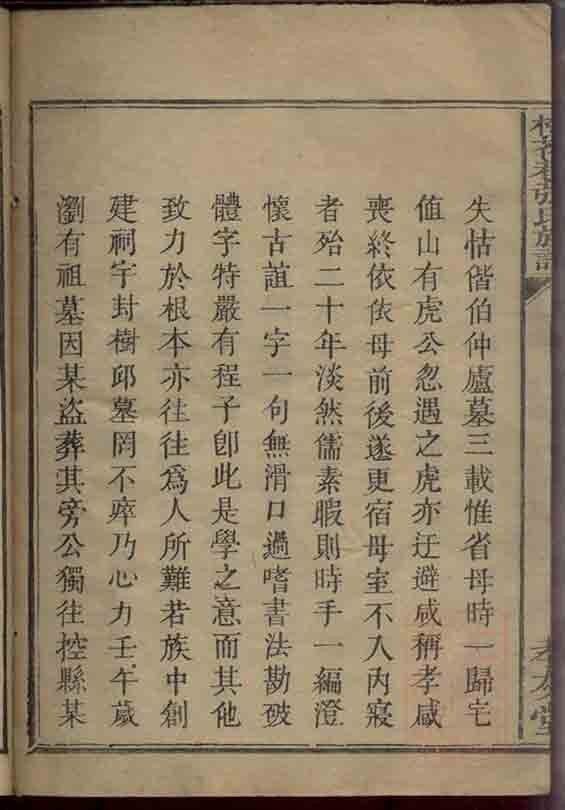 失怙偕伯仲廬墓三載惟省母時一歸宅
值山有虎公忽遇之虎亦迂避咸稱孝感
喪終依依母前後遂更宿母室不入內寢
者殆二十年淡然儒素暇則時手一編澄
懷古誼一字一句無滑口過嗜書法勘破
體字特嚴有程子卽此是學之意而其他
致力於根本亦往往爲人所難若族中創
建祠宇封樹邱墓罔不瘁乃心力壬午歲
瀏有祖墓因某盜葬其旁公獨往控縣某
張氏族譜
孝友堂